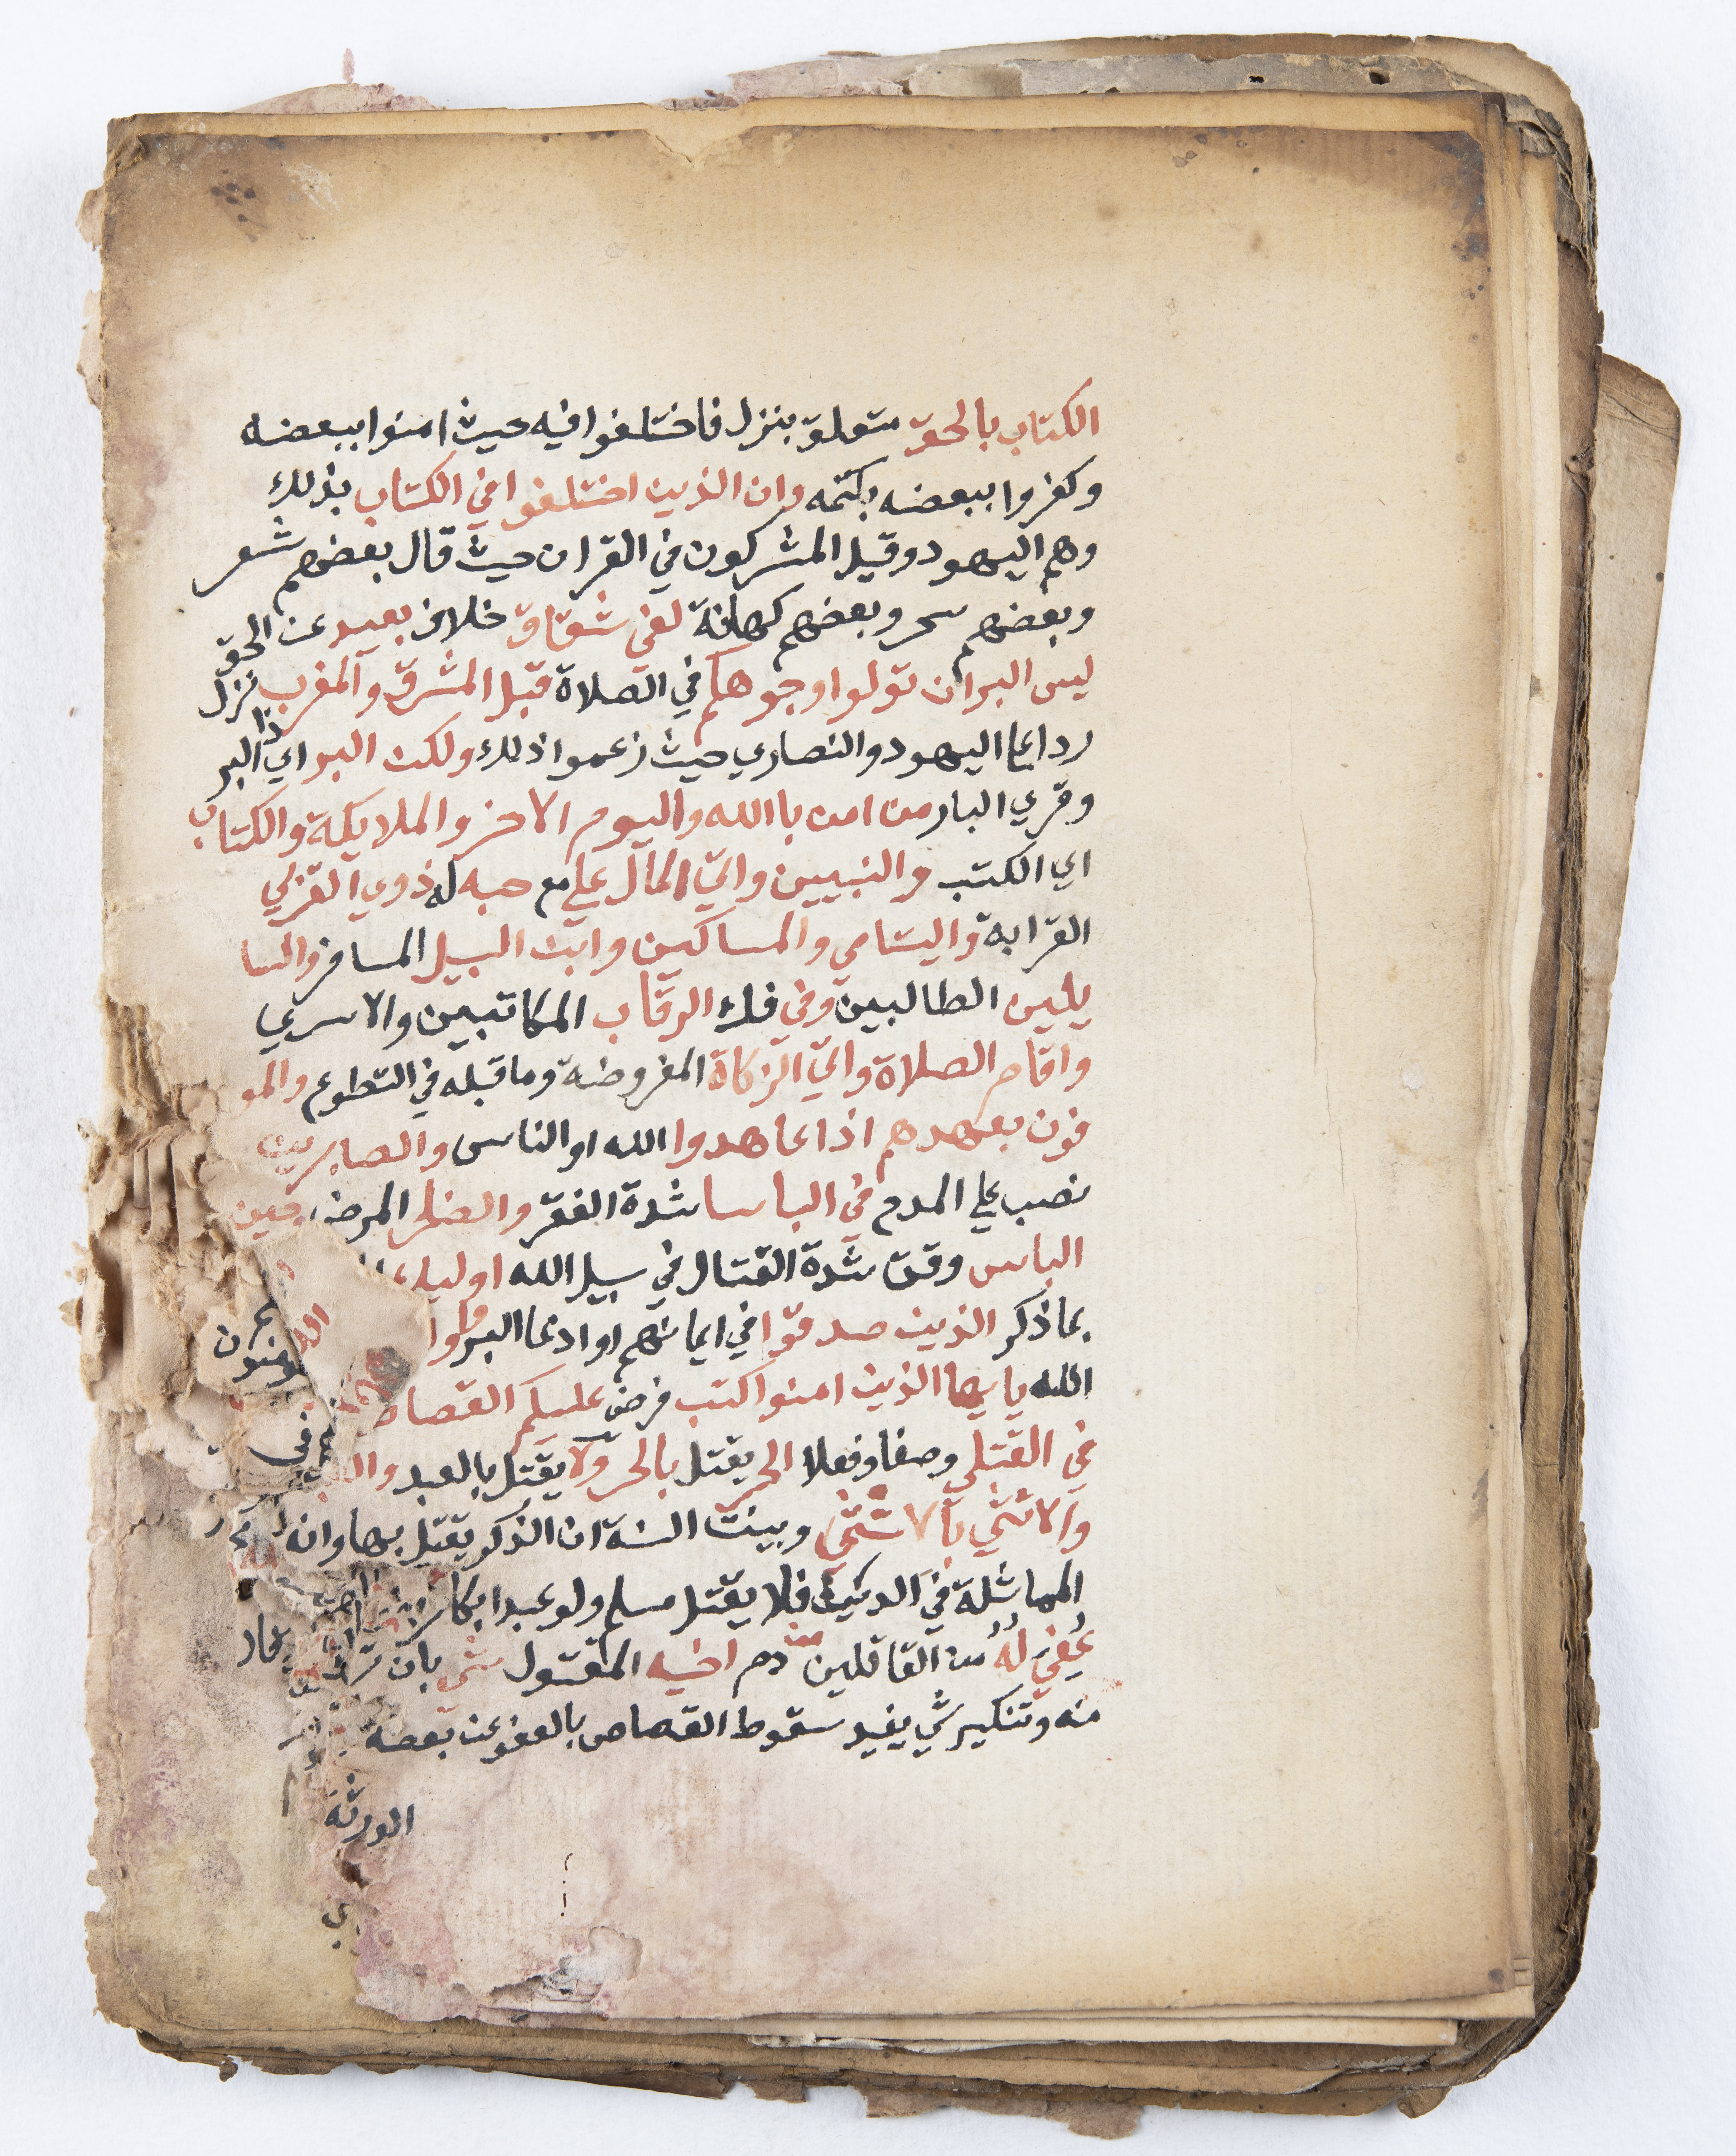 الكتاب بالحق متعلق بنزل فاختلفوا فيه حيث امنوا ببعضه
وكفروا ببعضه بكتمه وان الذين اختلفوا في الكتاب بذلك
وهم اليهود وقيل المشركون في القران حيث قال بعضهم شعر
وبعضهم سحر وبعضهم كهانة لفي شقاق خلاف بعيد عن الحق
ليس البر ان تولوا وجوهكم في الصلاة قبل المشرق والمغرب نزل
ردا علي اليهود والنصاري حيث زعموا ذلك ولكن البر اي ذا البر
وقري البار من امن باالله واليوم الاخر والملايكة والكتاب
اي الكتب والنبيين واتي المال علي مع حبه له ذوي القربي
القرابة واليتامي والمساكين وابن السبيل المسافر والسا
يلين الطالبين وفي فك الرقاب المكاتبين والاسري
واقام الصلاة واتي الزكاة المفروضة وما قبله في التطوع والمو
فون بعهدهم اذا عاهدوا الله او الناس والصابرين
نصب علي المدح في الباسا شدة الفقر والضرا المرض وحين
الباس وقت شدة القتال في سبيل الله اوليك
بما ذكر الذين صدقوا في ايمانهم او ادعا البر واو
الله يايها الذين امنوا كتب فرض عليكم القصاص
في القتلي وصفا وفعلا الحر يقتل بالحر ولا يقتل بالعبد
والانثي بالانثي وبينت السنة ان الذكر يقتل بها وانه
المماثلة في الدين فلا يقتل مسلم ولو عبدا بكافر
عُفي لهُ من القاتلين من دم اخيه المقتول شي بان ترك
منه وتنكير شي يفيد سقوط القصاص بالعفو عن بعضه
الورثة